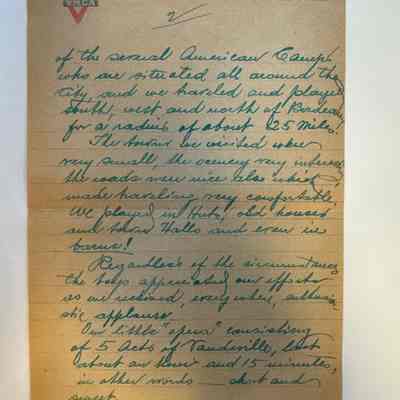 YMCA
2
of the several American Camps
who are situated all around the
City, and we traveled and played
South, west and north of Bordeaux
for a radius of about 25 miles!
The towns we visited were
very small, the scenery very interes
the roads were nice also which
made traveling very comfortable.
We played in Huts, old houses
and town Halls and even in
barns!
Regardless of the circumstances
the boys appreciated our efforts
as we received, everywhere, enthusia-
stic applause.
Our little "opera" consisting
of 5 Acts of Vaudeville, last
about an hour and 15 minutes,
in other words — short and
sweet